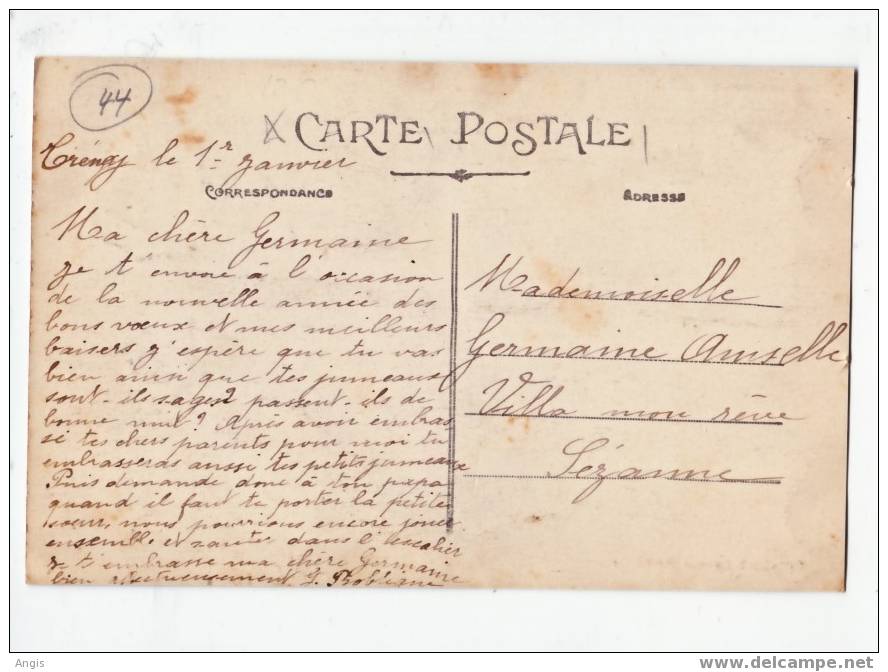 44
CARTE POSTALE
le 1r janvier
CORRESPONDANCE
ADRESSE
Ma chère Germaine
je t'envoie à l'occasion
de la nouvelle année des
bons vœux et mes meilleurs
baisers j'espère que tu vas
bien ainsi que tes jumeaux
sont-ils sages? passent-ils de
bonne nuit? Après avoir embras
sé tes chers parents pour moi tu
embrasseras aussi tes petits jumeaux
Puis demande donc à ton papa
quand il faut te porter la petite
sœur, nous pourrions encore jouer
ensemble et sauter dans l'escalier
je t'embrasse ma chère Germaine
bien affectueusement
Mademoiselle
Germaine Amselle
Villa mon rêve
Sézanne
Angis
www.delcampe.net